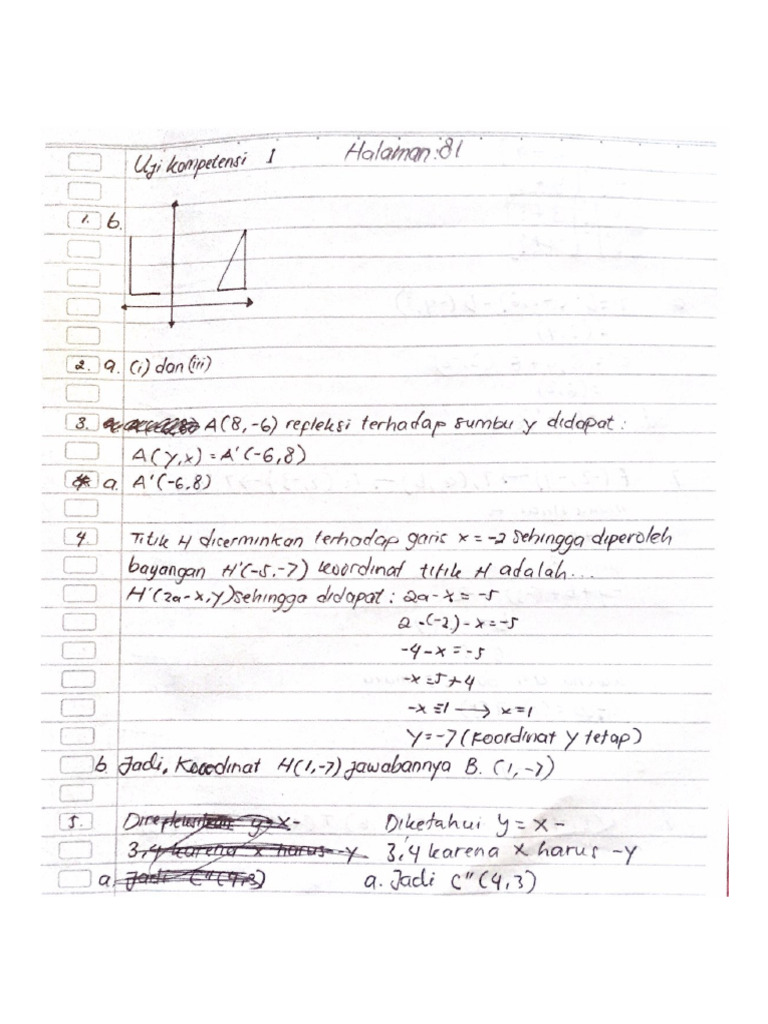 Uji kompetensi I Halaman: 81
1. b.
2. a. (i) dan (iii)
3. A(8,-6) repleksi terhadap sumbu y didapat:
A(y,x) = A'(-6,8)
a. A'(-6,8)
4. Titik H dicerminkan terhadap garis x = -2 sehingga diperoleh
bayangan H'(-5,-7) koordinat titik H adalah...
H'(2a-x,y) sehingga didapat: 2a-x = -5
2 · (-2) - x = -5
-4 - x = -5
-x = 5 + 4
-x = 1 → x = 1
Y = -7 (Koordinat y tetap)
b. Jadi, Koodinat H(1,-7) jawabannya B. (1,-7)
5. Diketahui y = x -
3,4 karena x harus -y
a. Jadi C"(4,3)